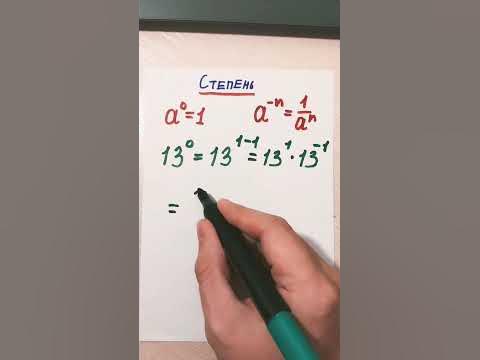 Степень
a⁰=1 a⁻ⁿ=1/aⁿ
13⁰=13¹⁻¹=13¹·13⁻¹
=